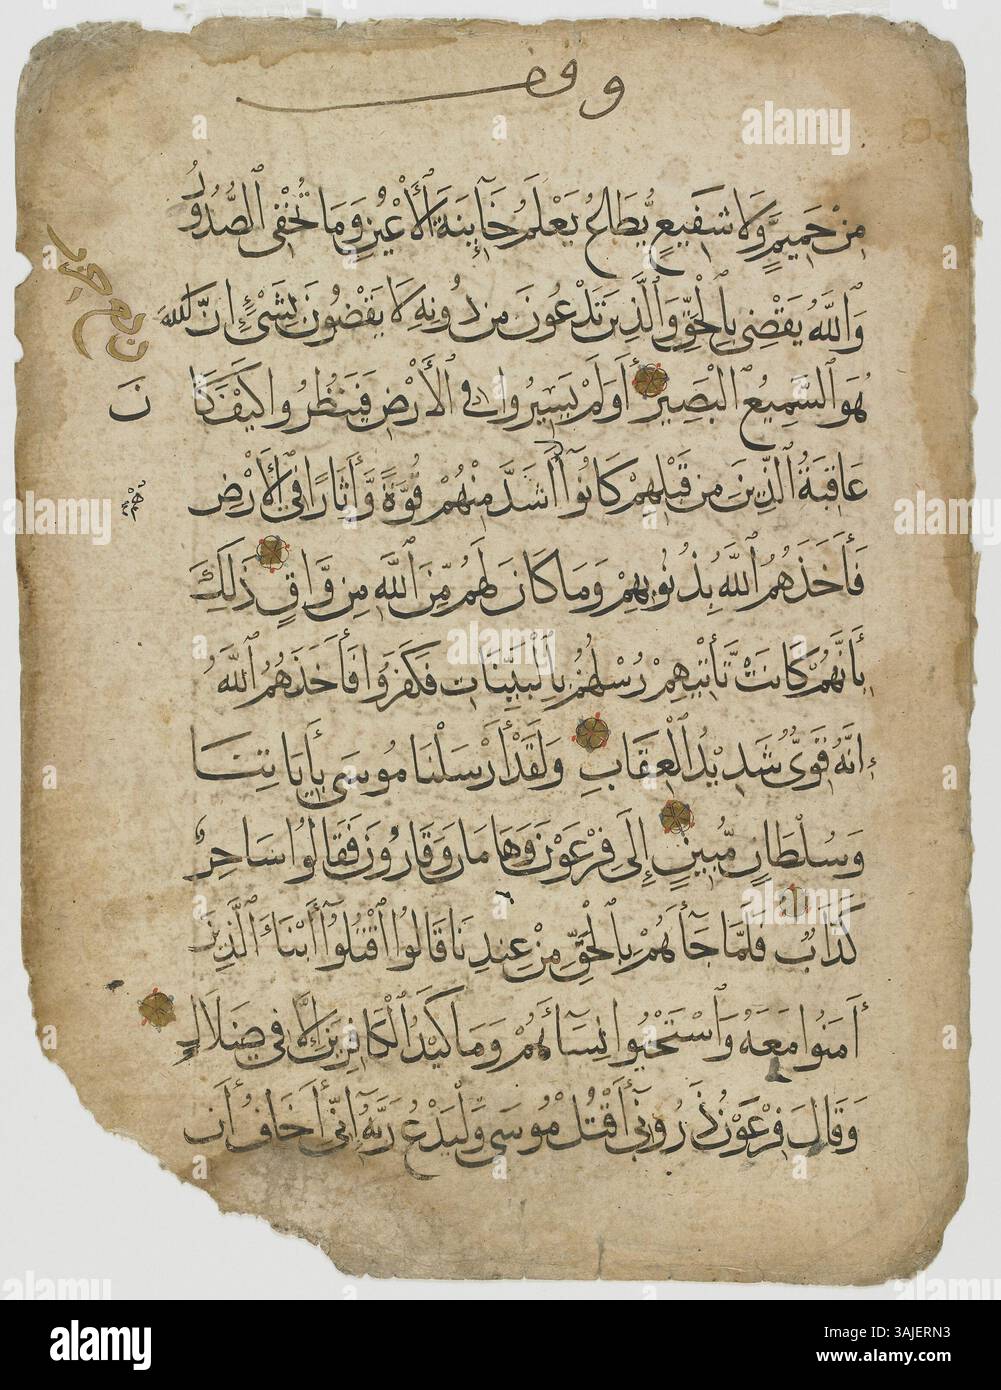 وقف
مِنْ حَمِيمٍ وَلَا شَفِيعٍ يُطَاعُ يَعْلَمُ خَآئِنَةَ ٱلْأَعْيُنِ وَمَا تُخْفِى ٱلصُّدُورُ
وَٱللَّهُ يَقْضِى بِٱلْحَقِّ وَٱلَّذِينَ تَدْعُونَ مِن دُونِهِ لَا يَقْضُونَ بِشَىْءٍ إِنَّ ٱللَّهَ
هُوَ ٱلسَّمِيعُ ٱلْبَصِيرُ أَوَلَمْ يَسِيرُوا فِى ٱلْأَرْضِ فَيَنظُرُوا كَيْفَ كَانَ
عَاقِبَةُ ٱلَّذِينَ مِن قَبْلِهِمْ كَانُوٓا أَشَدَّ مِنْهُمْ قُوَّةً وَأَثَارًا فِى ٱلْأَرْضِ
فَأَخَذَهُمُ ٱللَّهُ بِذُنُوبِهِمْ وَمَا كَانَ لَهُم مِّنَ ٱللَّهِ مِن وَّاقٍ ذَلِكَ
بِأَنَّهُمْ كَانَتْ تَّأْتِيهِمْ رُسُلُهُمْ بِٱلْبَيِّنَاتِ فَكَفَرُوا فَأَخَذَهُمُ ٱللَّهُ
إِنَّهُ قَوِىٌّ شَدِيدُ ٱلْعِقَابِ وَلَقَدْ أَرْسَلْنَا مُوسَى بِأَيَاتِنَا
وَسُلْطَانٍ مُّبِينٍ إِلَى فِرْعَوْنَ وَهَامَانَ وَقَارُونَ فَقَالُوا سَاحِرٌ
كَذَّابٌ فَلَمَّا جَآءَهُمْ بِٱلْحَقِّ مِنْ عِندِنَا قَالُوا ٱقْتُلُوٓا أَبْنَآءَ ٱلَّذِينَ
أَمَنُوا مَعَهُ وَٱسْتَحْيُوا نِسَآءَهُمْ وَمَا كَيْدُ ٱلْكَافِرِينَ إِلَّا فِى ضَلَالٍ
وَقَالَ فِرْعَوْنُ ذَرُونِىٓ أَقْتُلْ مُوسَى وَلْيَدْعُ رَبَّهُٓ إِنِّىٓ أَخَافُ أَن
alamy
Image ID: 3AJERN3
www.alamy.com